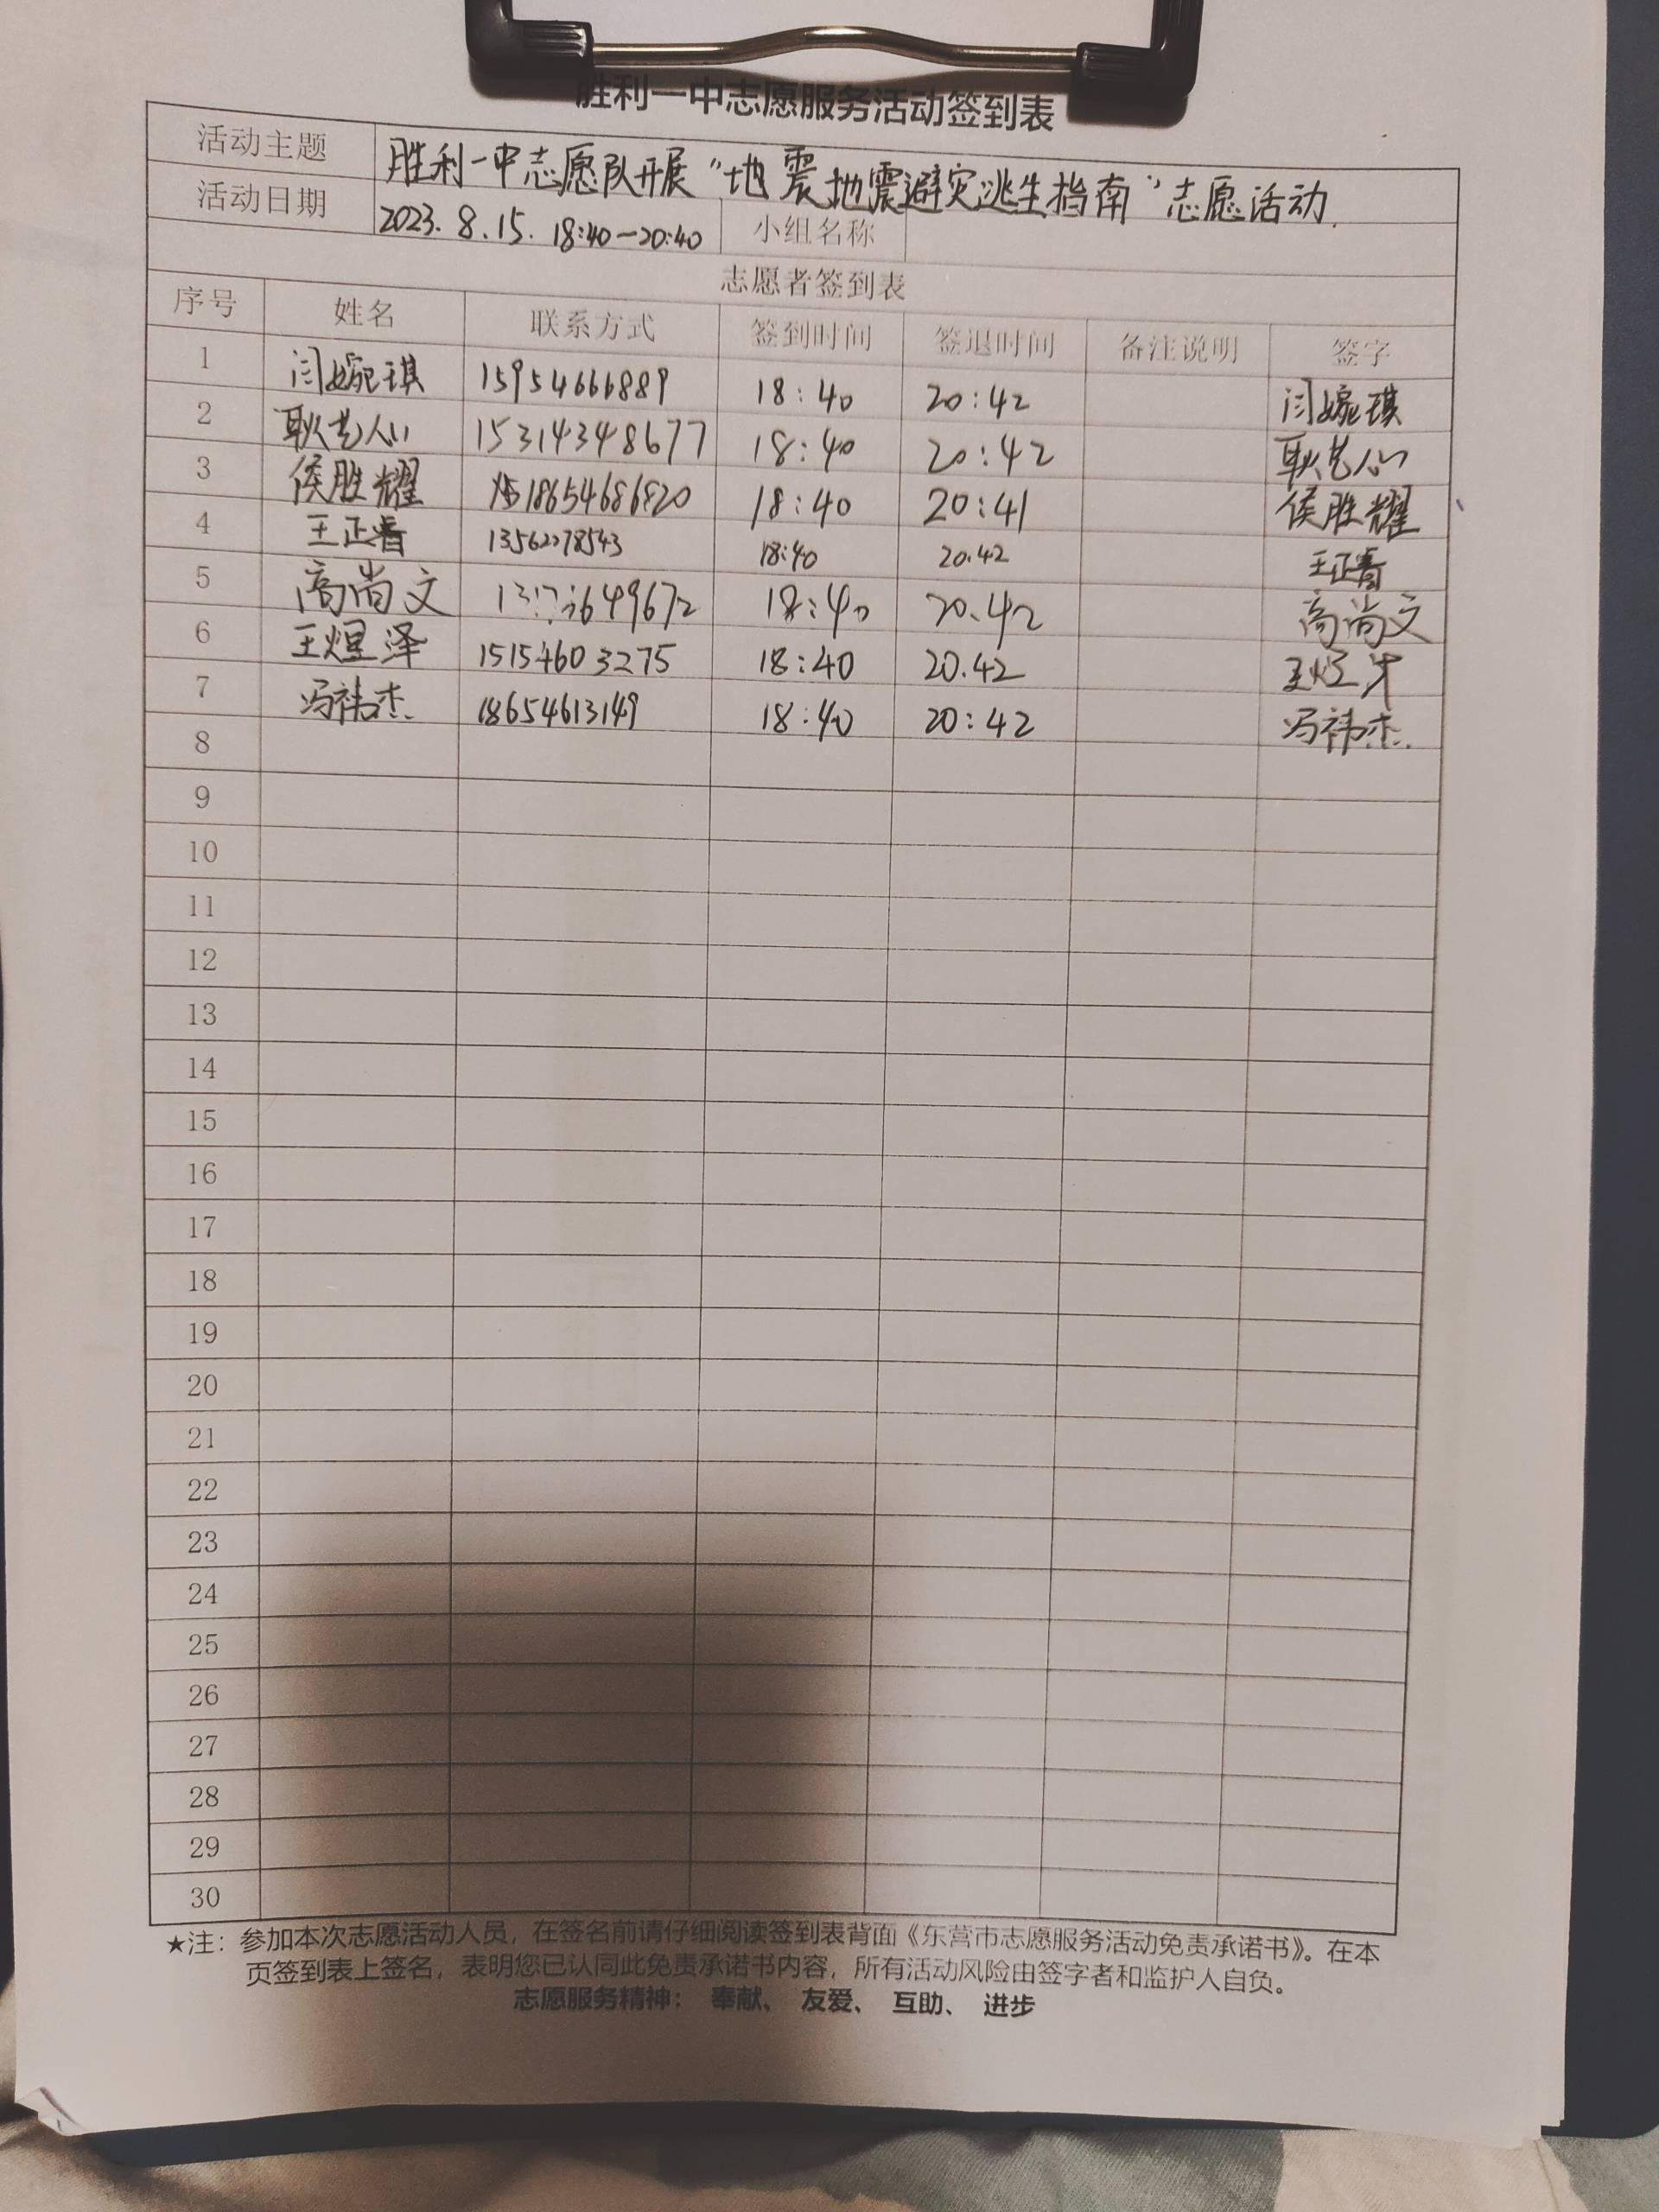 胜利一中志愿服务活动签到表
活动主题 胜利一中志愿队开展“地震地震避灾逃生指南”志愿活动.
活动日期 2023.8.15. 18:40—20:40 小组名称
志愿者签到表
序号 姓名 联系方式 签到时间 签退时间 备注说明 签字
1 闫婉琪 15954666889 18:40 20:42 闫婉琪
2 耿艺人 15314348677 18:40 20:42 耿艺
3 侯胜耀 18654686820 18:40 20:41 侯胜耀
4 王正睿 13562078543 18:40 20.42 王正睿
5 高尚文 18:40 20.42 高尚文
6 王煜泽 15154603275 18:40 20.42
7 冯祎杰 18654613149 18:40 20:42 冯祎杰
8
9
10
11
12
13
14
15
16
17
18
19
20
21
22
23
24
25
26
27
28
29
30
★注：参加本次志愿活动人员，在签名前请仔细阅读签到表背面《东营市志愿服务活动免责承诺书》。在本
页签到表上签名，表明您已认同此免责承诺书内容，所有活动风险由签字者和监护人自负。
志愿服务精神： 奉献、 友爱、 互助、 进步